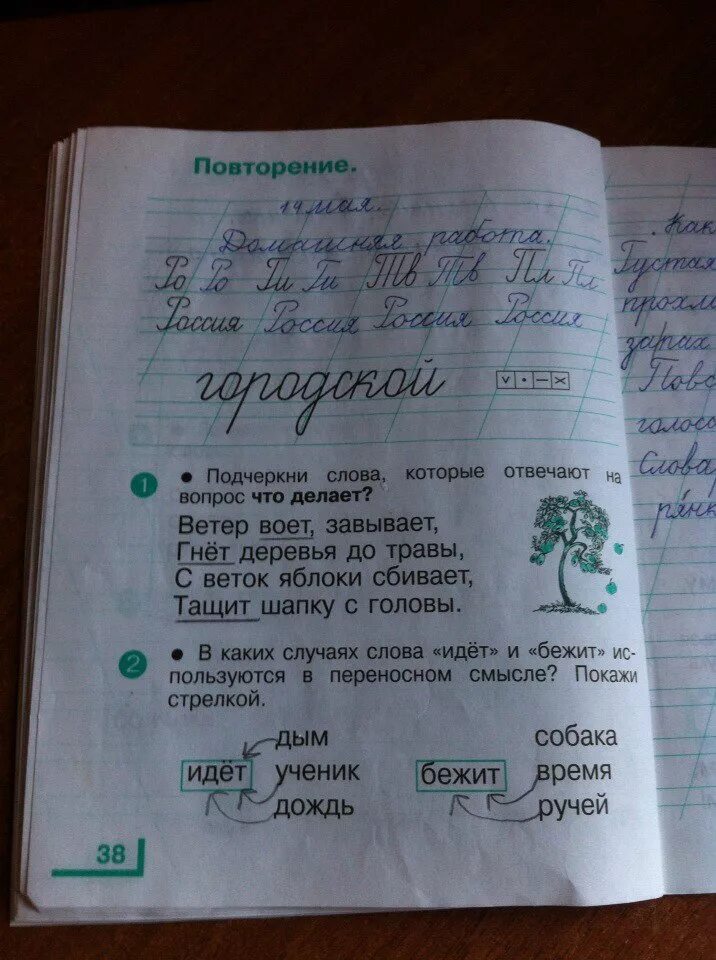 Повторение.
14 мая.
Домашняя работа.
Ро Ро Ги Ги Тв Тв Пл Пл
Россия Россия Россия Россия
городской
1 • Подчеркни слова, которые отвечают на
вопрос что делает?
Ветер воет, завывает,
Гнёт деревья до травы,
С веток яблоки сбивает,
Тащит шапку с головы.
2 • В каких случаях слова «идёт» и «бежит» ис-
пользуются в переносном смысле? Покажи
стрелкой.
дым собака
идёт ученик бежит время
дождь ручей
38
Как
Густая
зарах
голос